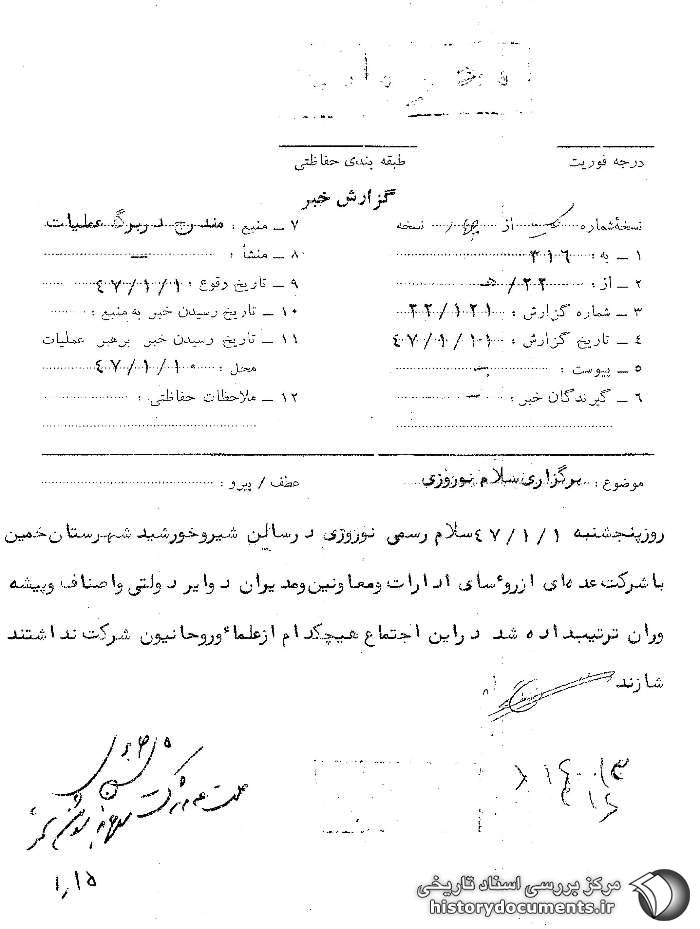 درجه فوریت
طبقه بندی حفاظتی
گزارش خبر
نسخهٔ شماره از نسخه
۱ ــ به : ۳۱۶
۲ ــ از : ۲۲/ هـ
۳ ــ شماره گزارش : ۲۲/۱۲۱
۴ ــ تاریخ گزارش : ۴۷/۱/۱۱
۵ ــ پیوست : ــ
۶ ــ گیرندگان خبر : ــ
۷ ــ منبع : مندرج در برگ عملیات
۸ ــ منشأ : ــ
۹ ــ تاریخ وقوع : ۴۷/۱/۱
۱۰ ــ تاریخ رسیدن خبر به منبع :
۱۱ ــ تاریخ رسیدن خبر برهبر عملیات
محل : ۴۷/۱/۱۰
۱۲ ــ ملاحظات حفاظتی :
موضوع : برگزاری سلام نوروزی
عطف / پیرو :
روز پنجشنبه ۴۷/۱/۱ سلام رسمی نوروزی در سالن شیروخورشید شهرستان خمین
با شرکت عده‌ای از روٴسای ادارات و معاونین و مدیران دوایر دولتی و اصناف و پیشه
وران ترتیب داده شد در این اجتماع هیچکدام از علماء و روحانیون شرکت نداشتند
شازند
۱٫۱۵
مرکز بررسی اسناد تاریخی
historydocuments.ir